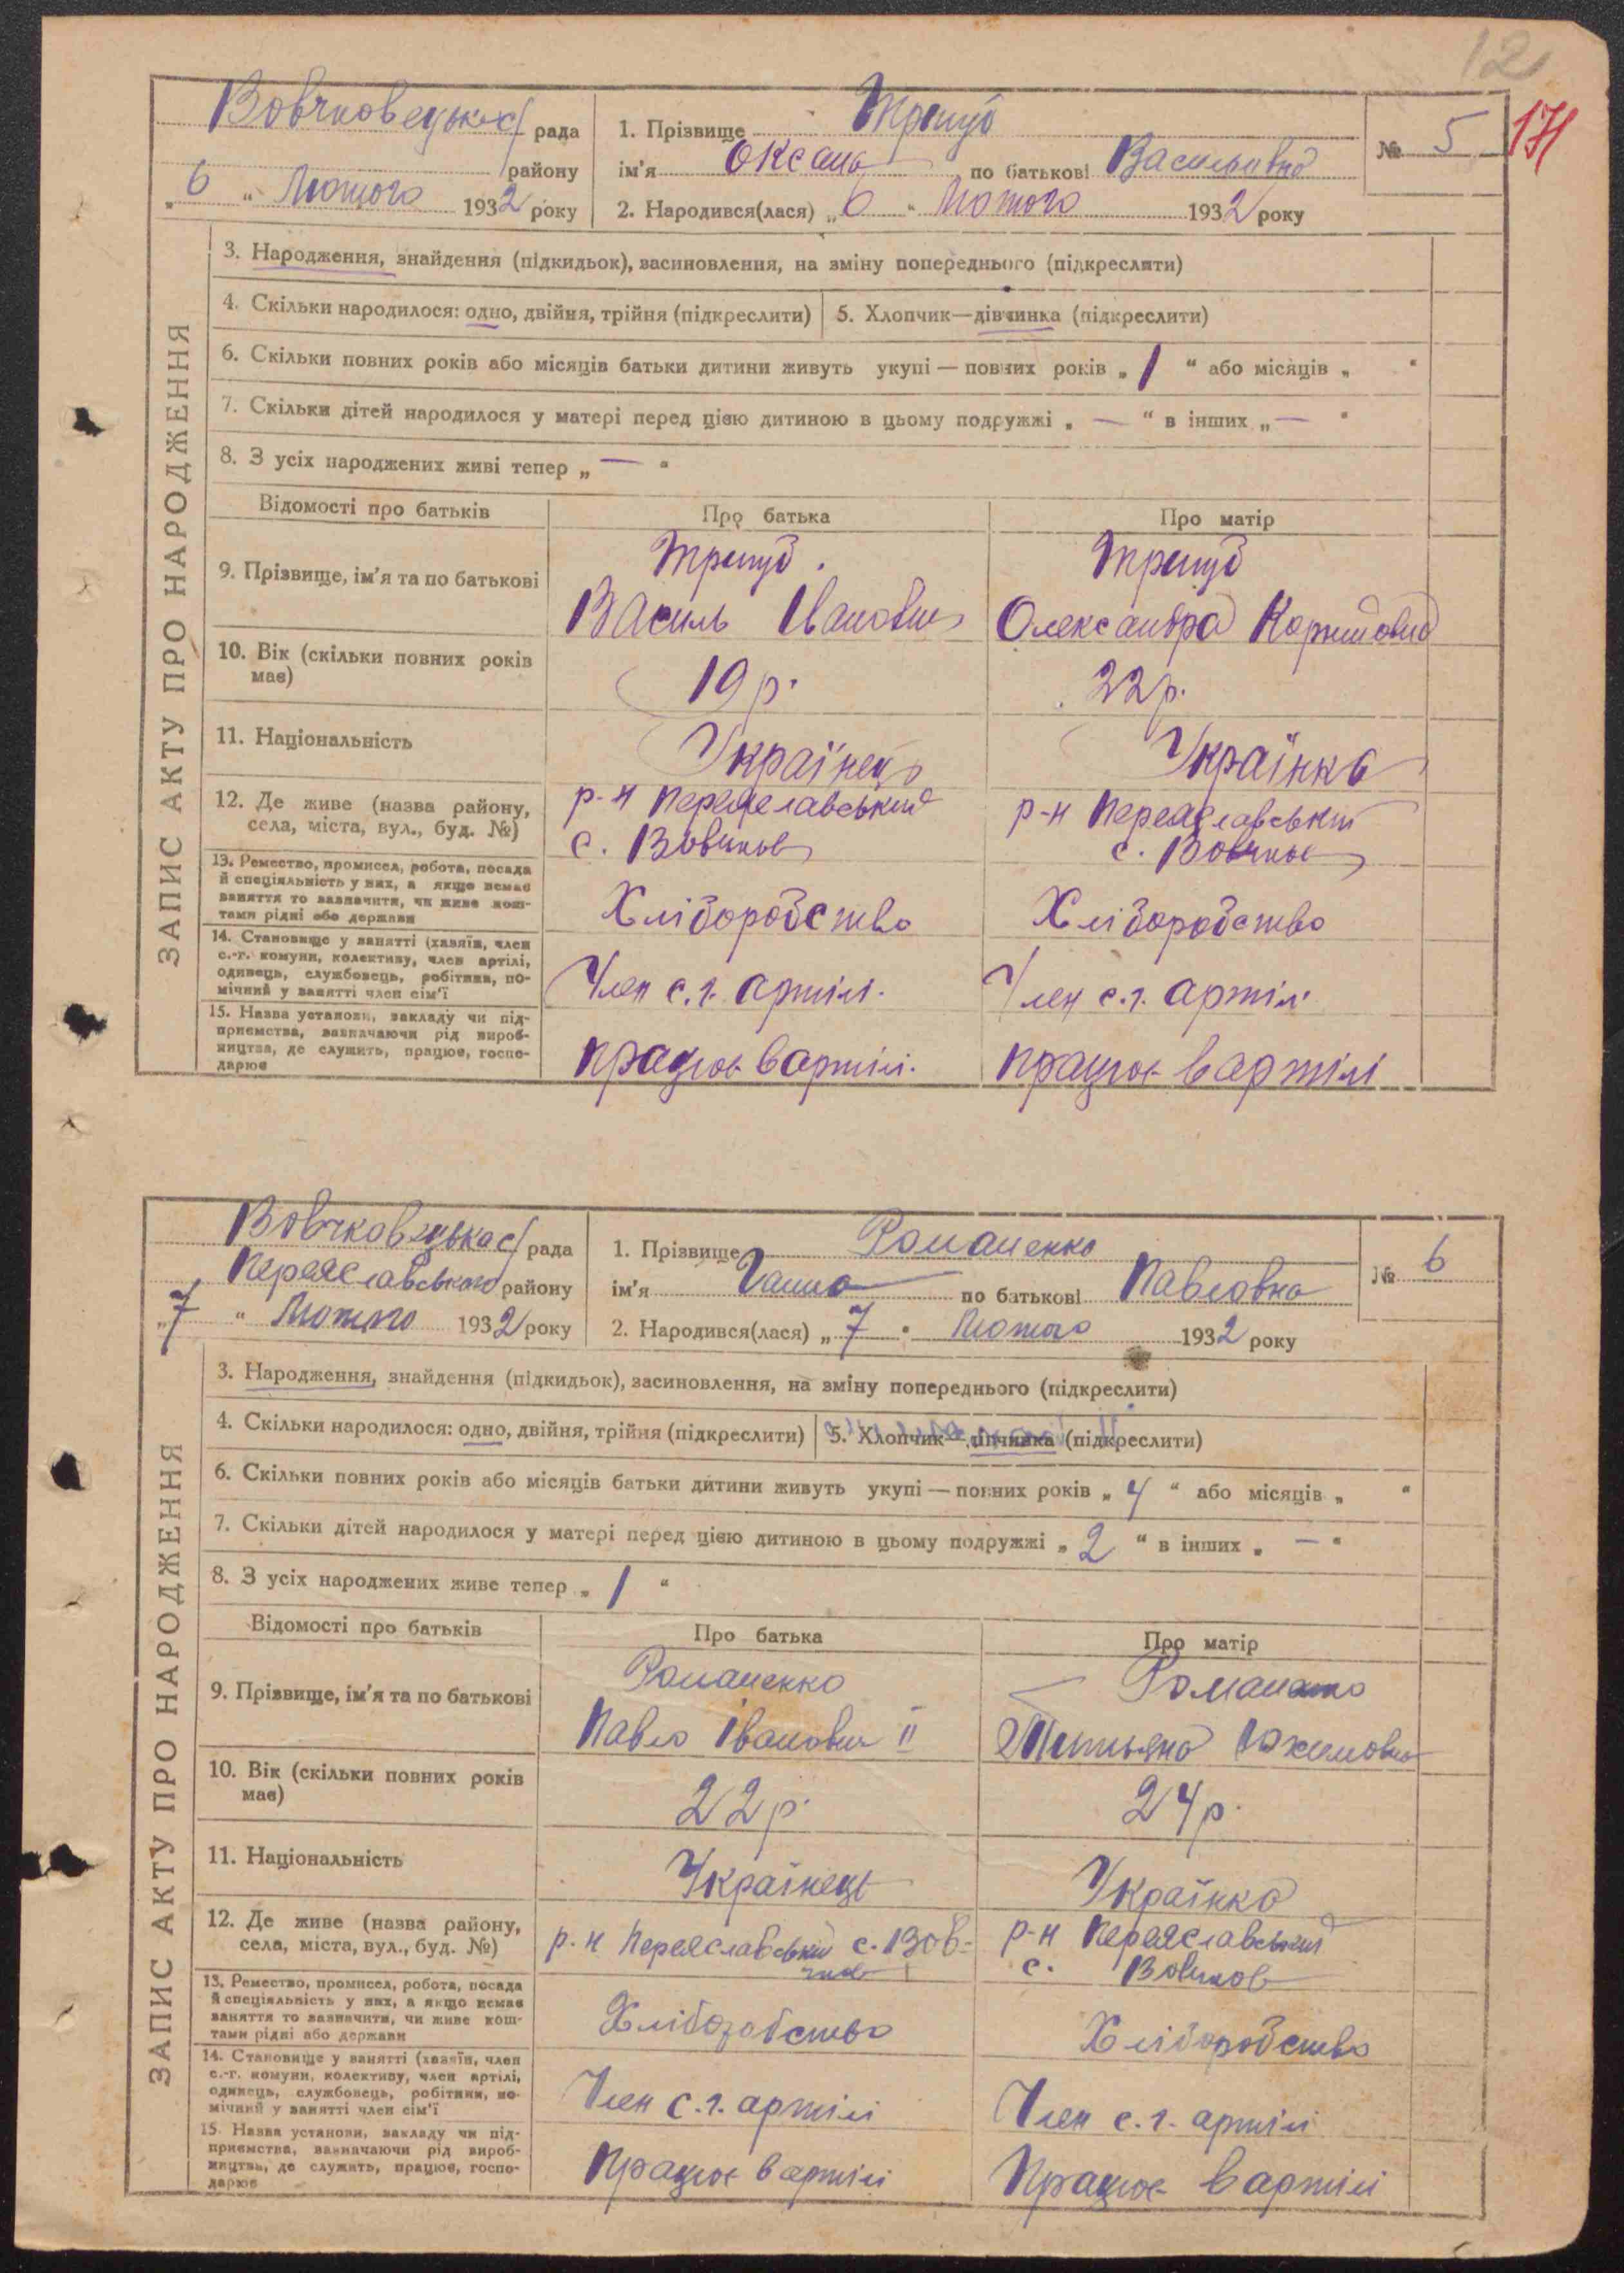 12
171
Вовчковецька с/рада
району
„6“ Лютого 1932 року
1. Прізвище Трегуб
ім'я Оксана по батькові Василівна
2. Народився(лася) „6“ Лютого 1932 року
№ 5
ЗАПИС АКТУ ПРО НАРОДЖЕННЯ
3. Народження, знайдення (підкидьок), засиновлення, на зміну попереднього (підкреслити)
4. Скільки народилося: одно, двійня, трійня (підкреслити)
5. Хлопчик—дівчинка (підкреслити)
6. Скільки повних років або місяців батьки дитини живуть укупі — повних років „1“ або місяців „ “
7. Скільки дітей народилося у матері перед цією дитиною в цьому подружжі „—“ в інших „—“
8. З усіх народжених живі тепер „—“
Відомості про батьків
Про батька
Про матір
9. Прізвище, ім'я та по батькові
Трегуб
Василь Іванович
Трегуб
Олександра
10. Вік (скільки повних років
має)
19 р.
22 р.
11. Національність
Українець
Українка
12. Де живе (назва району,
села, міста, вул., буд. №)
р-н Переяславський
с. Вовчков
р-н Переяславський
с. Вовчков
13. Ремество, промисел, робота, посада
й спеціяльність у них, а якщо немає
заняття то зазначити, чи живе кош-
тами рідні або держави
Хліборобство
Хліборобство
14. Становище у занятті (хазяїн, член
с.-г. комуни, колективу, член артілі,
одинець, службовець, робітник, по-
мічний у занятті член сім'ї
Член с.г. артілі.
Член с.г. артілі
15. Назва установи, закладу чи під-
приємства, зазначаючи рід вироб-
ництва, де служить, працює, госпо-
дарює
працює в артілі.
працює в артілі
Вовчковецька с/рада
Переяславського району
„7“ Лютого 1932 року
1. Прізвище Романенко
ім'я Ганна по батькові Павловна
2. Народився(лася) „7“ Лютого 1932 року
№ 6
ЗАПИС АКТУ ПРО НАРОДЖЕННЯ
3. Народження, знайдення (підкидьок), засиновлення, на зміну попереднього (підкреслити)
4. Скільки народилося: одно, двійня, трійня (підкреслити)
5. Хлопчик—дівчинка (підкреслити)
6. Скільки повних років або місяців батьки дитини живуть укупі — повних років „4“ або місяців „ “
7. Скільки дітей народилося у матері перед цією дитиною в цьому подружжі „2“ в інших „—“
8. З усіх народжених живе тепер „1“
Відомості про батьків
Про батька
Про матір
9. Прізвище, ім'я та по батькові
Романенко
Павло Іванович ІІ
Романенко
Тетьяна
10. Вік (скільки повних років
має)
22 р.
24 р.
11. Національність
Українець
Українка
12. Де живе (назва району,
села, міста, вул., буд. №)
р-н Переяславський с. Вов-
чков
р-н Переяславський
с. Вовчков
13. Ремество, промисел, робота, посада
й спеціяльність у них, а якщо немає
заняття то зазначити, чи живе кош-
тами рідні або держави
Хліборобство
Хліборобство
14. Становище у занятті (хазяїн, член
с.-г. комуни, колективу, член артілі,
одинець, службовець, робітник, по-
мічний у занятті член сім'ї
Член с.г. артілі
Член с.г. артілі
15. Назва установи, закладу чи під-
приємства, зазначаючи рід вироб-
ництва, де служить, працює, госпо-
дарює
Працює в артілі
Працює в артілі